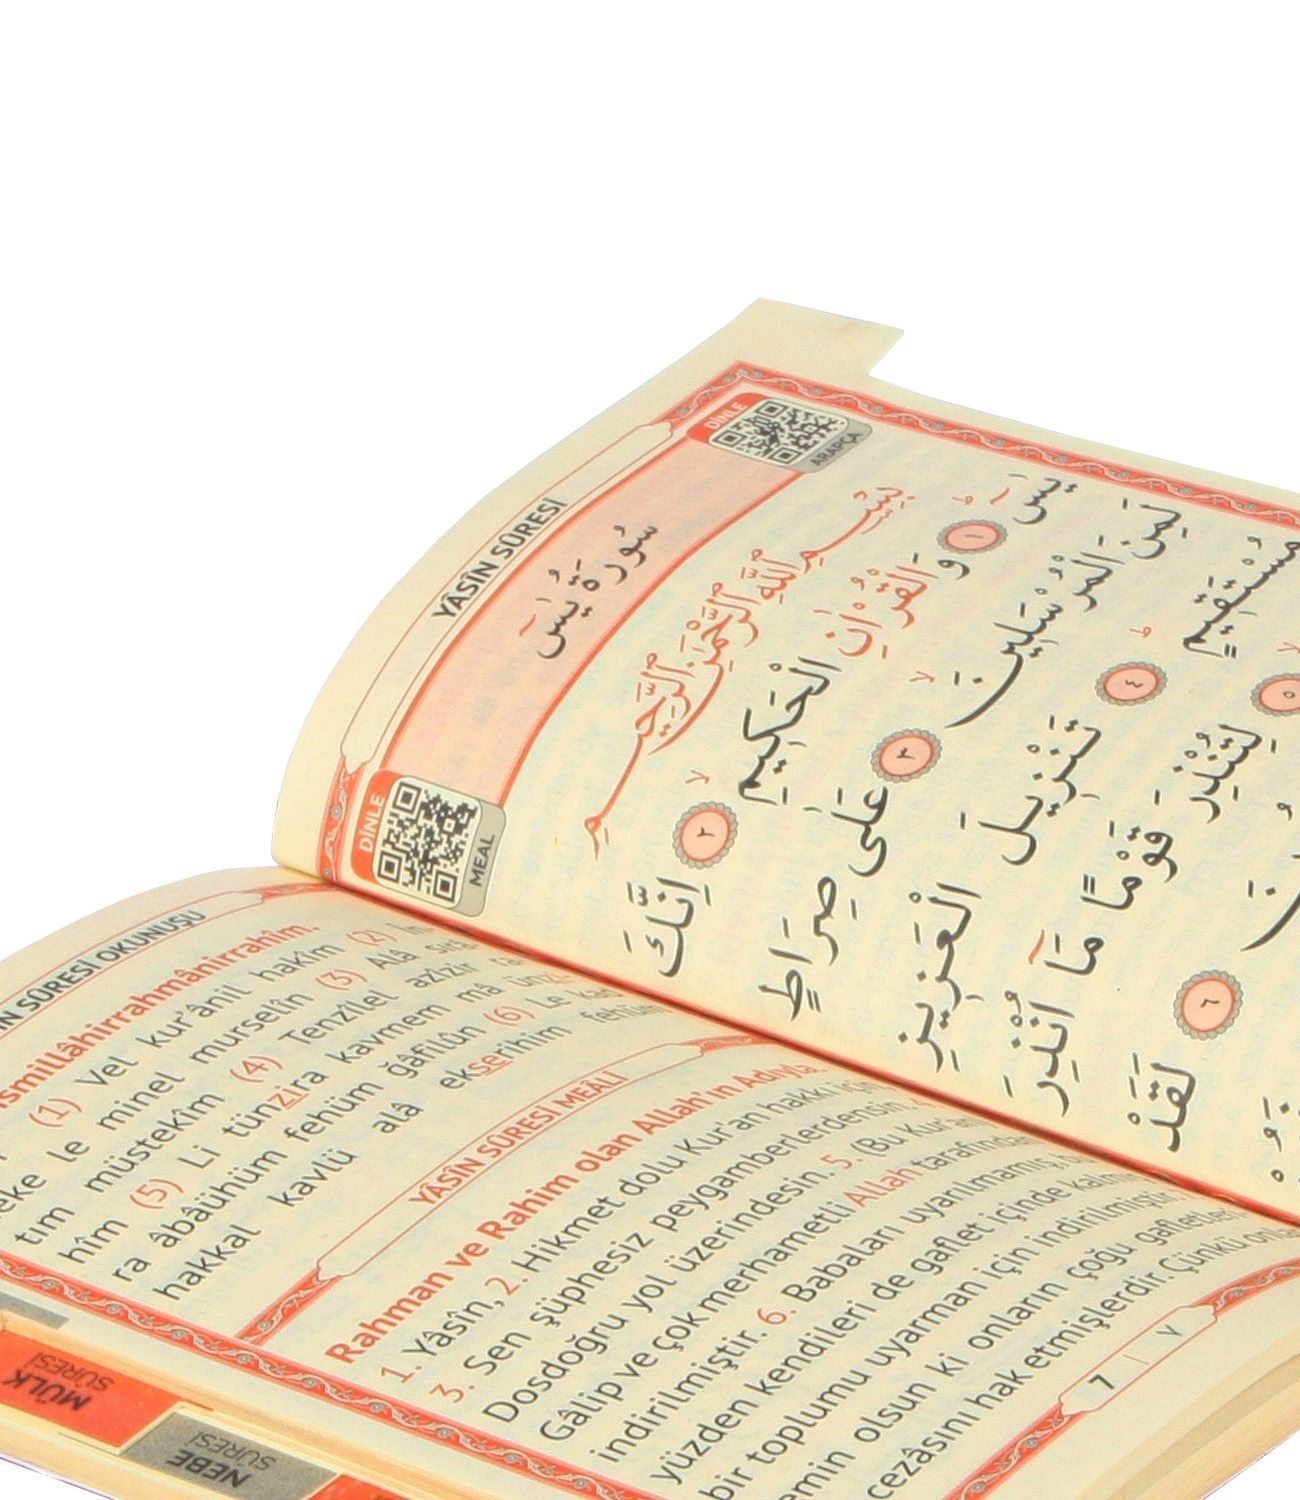 YÂSÎN SÛRESİ
DİNLE
ARAPÇA
سُورَةُ يٰسٓ
DİNLE
MEAL
بِسْمِ اللّٰهِ الرَّحْمٰنِ الرَّحِيمِ
يٰسٓ ۚ ١ وَالْقُرْاٰنِ الْحَكِيمِ ۙ ٢ اِنَّكَ
لَمِنَ الْمُرْسَلِينَ ۙ ٣ عَلٰى صِرَاطٍ
مُسْتَقِيمٍ ۜ ٤ تَنْزِيلَ الْعَزِيزِ
٥ لِتُنْذِرَ قَوْمًا مَٓا اُنْذِرَ
٦ لَقَدْ
SÛRESİ OKUNUŞU
(1) Vel kur'ânil hakîm (2) İn-
le minel murselîn (3) Alâ sırâ-
tim müstekîm (4) Tenzîlel azîzir ra-
hîm (5) Li tünzira kavmem mâ ünzi-
ra âbâühüm fehüm ğâfilûn (6) Le kad
hakkal kavlü alâ ekserihim fehüm
YÂSÎN SÛRESİ MEÂLİ
Rahman ve Rahim olan Allah'ın Adıyla.
1. Yâsîn, 2. Hikmet dolu Kur'an hakkı için
3. Sen şüphesiz peygamberlerdensin.
Dosdoğru yol üzerindesin. 5. (Bu Kur'an)
Gâlip ve çok merhametli Allah tarafından
indirilmiştir. 6. Babaları uyarılmamış,
yüzden kendileri de gaflet içinde
bir toplumu uyarman için indirilmiştir.
olsun ki onların çoğu gafletleri
cezâsını hak etmişlerdir. Çünkü
7 | ٧
MÜLK
SÛRESİ
NEBE
SÛRESİ